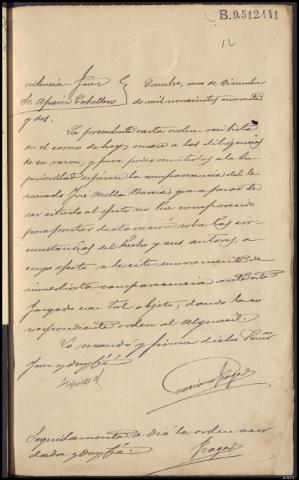 B.9.512.441
12
Providencia Juez
Sr. Aparici Caballero
Carubre, uno de Diciembre
de mil novecientos cuarenta
y dos.
La precedente carta orden recibida
en el correo de hoy, únase a las diligencias
de su razón, y para poder remitirlas a la Su-
perioridad
José Mella
ser citado al efecto no ha comparecido
para prestar declaración sobre las cir-
cunstancias del hecho y sus autores, a
cuyo efecto, se le cite nuevamente de
inmediata comparecencia ante este
Juzgado con tal objeto, dando la co-
rrespondiente orden al Alguacil.
Lo mandó y firma dicho Señor
Juez y doy fé.
Seguidamente se dió la orden acor-
dada y doy fé.